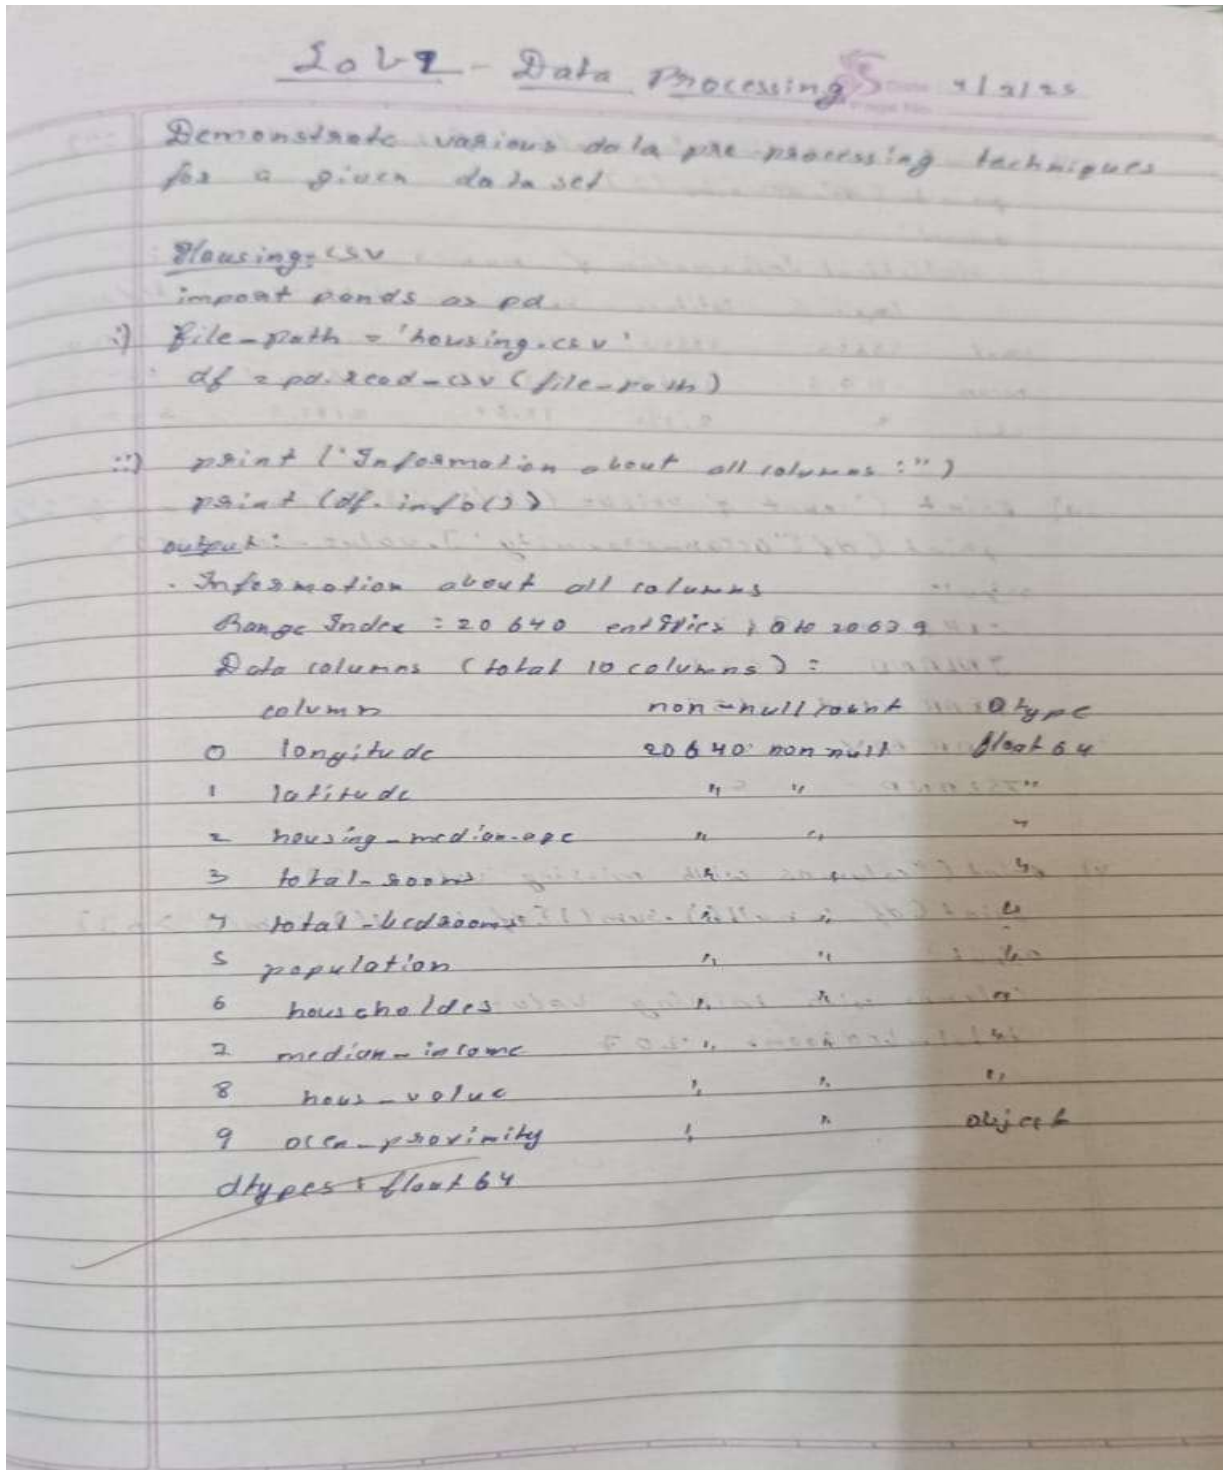 Lab 1 - Data Processing
Demonstrate various data pre-processing techniques
for a given data set
Housing.csv
import pands as pd
i) file-path = 'housing.csv'
df = pd.read-csv (file-path)
ii) print ("Information about all columns :")
print (df.info())
output:
. Information about all columns
Range Index : 20640 entries, 0 to 20639
Data columns (total 10 columns) :
column non-null count Dtype
0 longitude 20640 non null float 64
1 latitude " " "
2 housing-median-age " " "
3 total-rooms " " "
4 total-bedrooms " " "
5 population " " "
6 householdes " " "
7 median-income " " "
8 hous-value " " "
9 ocen-proximity " " object
dtypes : float 64